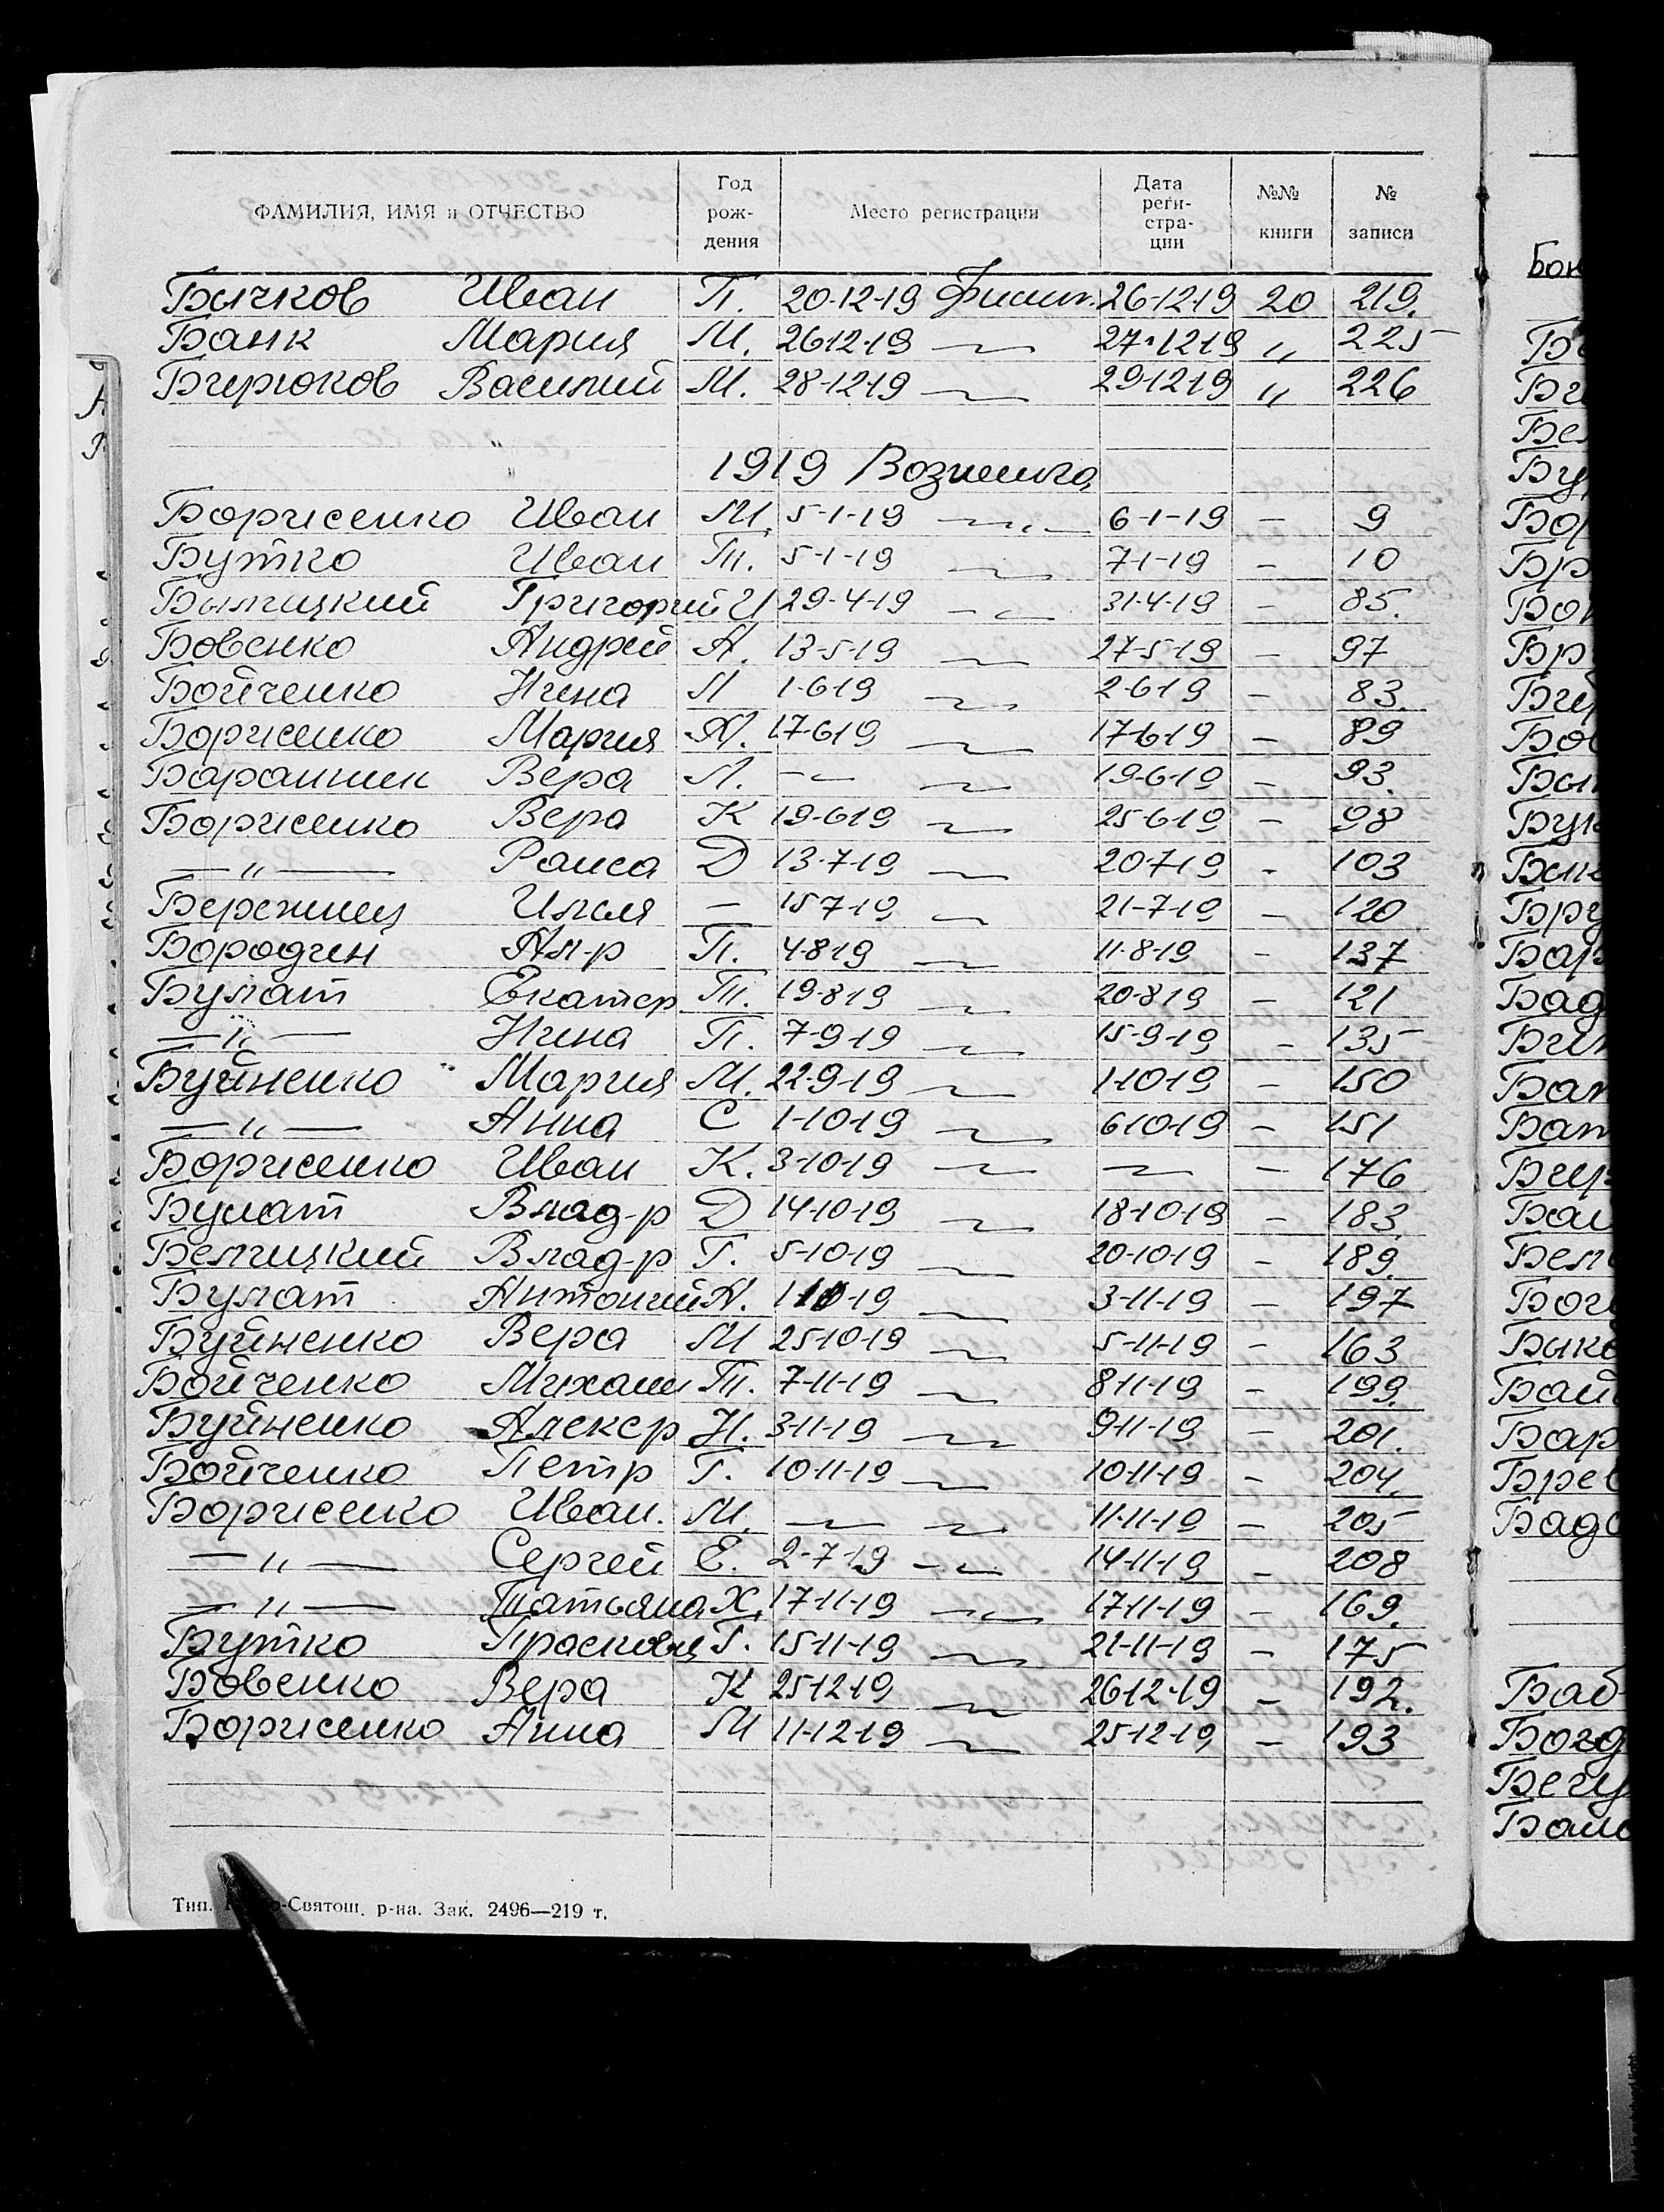 ФАМИЛИЯ, ИМЯ и ОТЧЕСТВО Год рож- дения Место регистрации Дата реги- стра- ции №№ книги № записи
Бычков Иван П. 20-12-19 26-12-19 20 219.
Банк Мария М. 26-12-19 27-12-19 " 225
Бирюков Василий М. 28-12-19 29-12-19 " 226
1919
Борисенко Иван М. 5-1-19 — " — 6-1-19 — 9
Бутко Иван Т. 5-1-19 7-1-19 — 10
Григорий И 29-4-19 31-4-19 — 85.
Бовенко Андрей А. 13-5-19 27-5-19 — 97
Бойченко Нина 1-6-19 2-6-19 — 83.
Борисенко Мария 17-6-19 17-6-19 — 89
Вера Л. — 19-6-19 — 93.
Борисенко Вера К 19-6-19 25-6-19 — 98
— " — Раиса D 13-7-19 20-7-19 - 103
— 15-7-19 21-7-19 — 120
Бородин Ал-р П. 4-8-19 11-8-19 - 137
Булат Екатер Т. 19-8-19 20-8-19 — 121
— " — Нина П. 7-9-19 15-9-19 — 135
Буйненко Мария М. 22-9-19 1-10-19 — 150
— " — Анна С 1-10-19 6-10-19 — 151
Борисенко Иван К. 3-10-19 — 176
Булат Влад-р D 14-10-19 18-10-19 — 183.
Белицкий Влад-р Г. 5-10-19 20-10-19 — 189.
Булат Антоний А. 3-11-19 — 197
Буйненко Вера М 25-10-19 5-11-19 — 163
Бойченко Михаил Т. 7-11-19 8-11-19 — 199.
Буйненко Алекср Н. 3-11-19 9-11-19 — 201.
Бойченко Петр Г. 10-11-19 10-11-19 — 204.
Борисенко Иван. М. — 11-11-19 — 205
— " — Сергей Е. 2-7-19 14-11-19 — 208
— " — Татьяна Х. 17-11-19 17-11-19 — 169.
Бутко Прасковья Г. 15-11-19 21-11-19 — 175
Бовенко Вера К 25-12-19 26-12-19 — 192.
Борисенко Анна М 11-12-19 25-12-19 — 193
Тип. о-Святош. р-на. Зак. 2496—219 т.